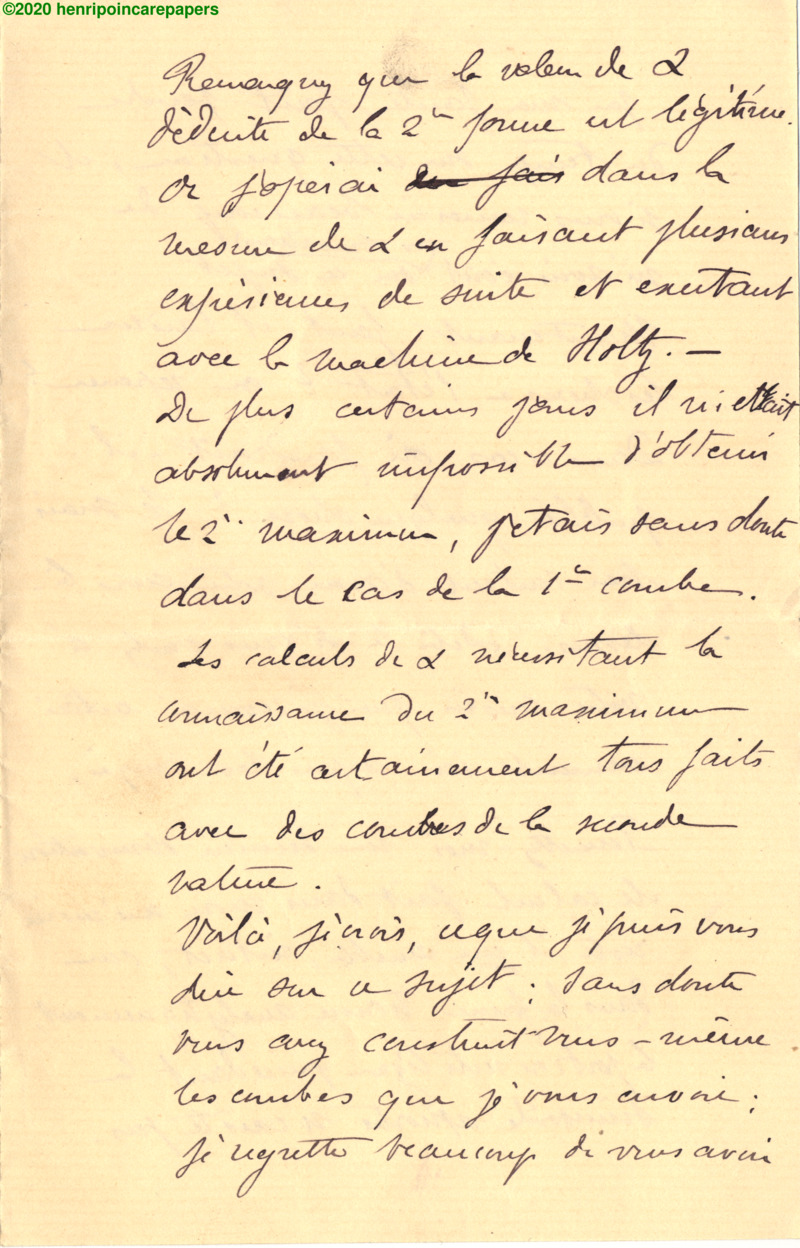 ©2020 henripoincarepapers
Remarquez que la valeur de α
déduite de la 2e forme est légitime.
Or j'opérai en fais dans la
mesure de α en faisant plusieurs
expériences de suite et excitant
avec la machine de Holtz. —
De plus certains jours il m'était
absolument impossible d'obtenir
le 2e maximum, j'étais sans doute
dans le cas de la 1re courbe.
Les calculs de α nécessitant la
connaissance du 2e maximum
ont été certainement tous faits
avec des courbes de la seconde
nature.
Voilà, je crois, ce que je puis vous
dire sur ce sujet ; sans doute
vous avez construit vous-même
les courbes que je vous envoie ;
je regrette beaucoup de vous avoir